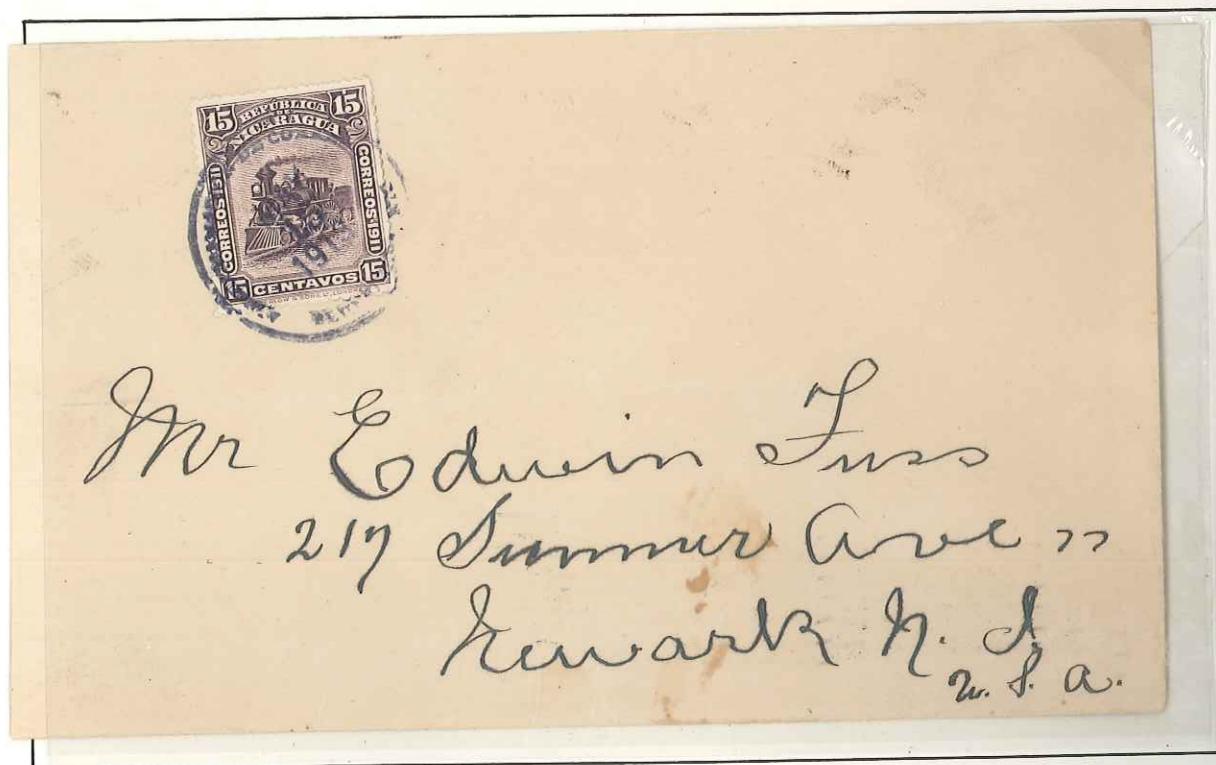 15 REPUBLICA 15
DE
NICARAGUA
CORREOS 1911
CORREOS 1911
15 CENTAVOS 15
Mr Edwin Fuss
217 Summer Ave "
Newark N. J.
U. S. A.